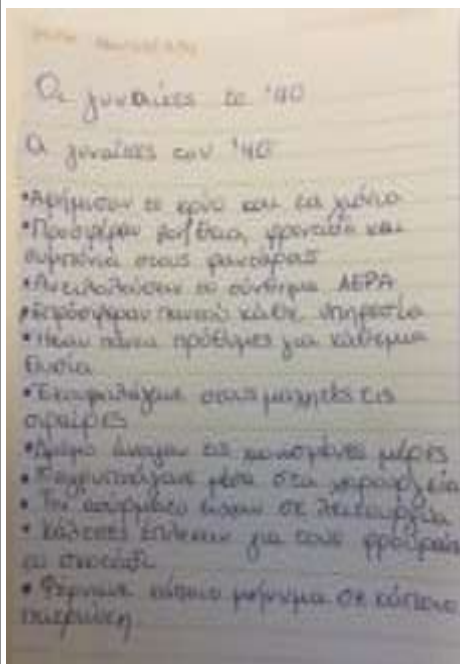 Οι γυναίκες το '40
Οι γυναίκες του '40
•Αψήφισαν το κρύο και τα χιόνια
•Προσφέραν βοήθεια, φροντίδα και
συμπόνια στους φαντάρους
•Αντιλαλούσαν το σύνθημα ΑΕΡΑ
•Επρόσφεραν παντού κάθε υπηρεσία
•Ήταν πάντα πρόθυμες για κάθε
θυσία
•Εκουβαλάγανε στους μαχητές τις
σφαίρες
•Δρόμο άνοιγαν τις χιονισμένες μέρες
• μέσα στα χειρουργεία
• Τον ασύρματο είχαν σε λειτουργία
• Κάλτσες έπλεκαν για τους φρουρούς
το σκοτάδι
• Φέρνανε κάποιο μήνυμα σε κάποιο